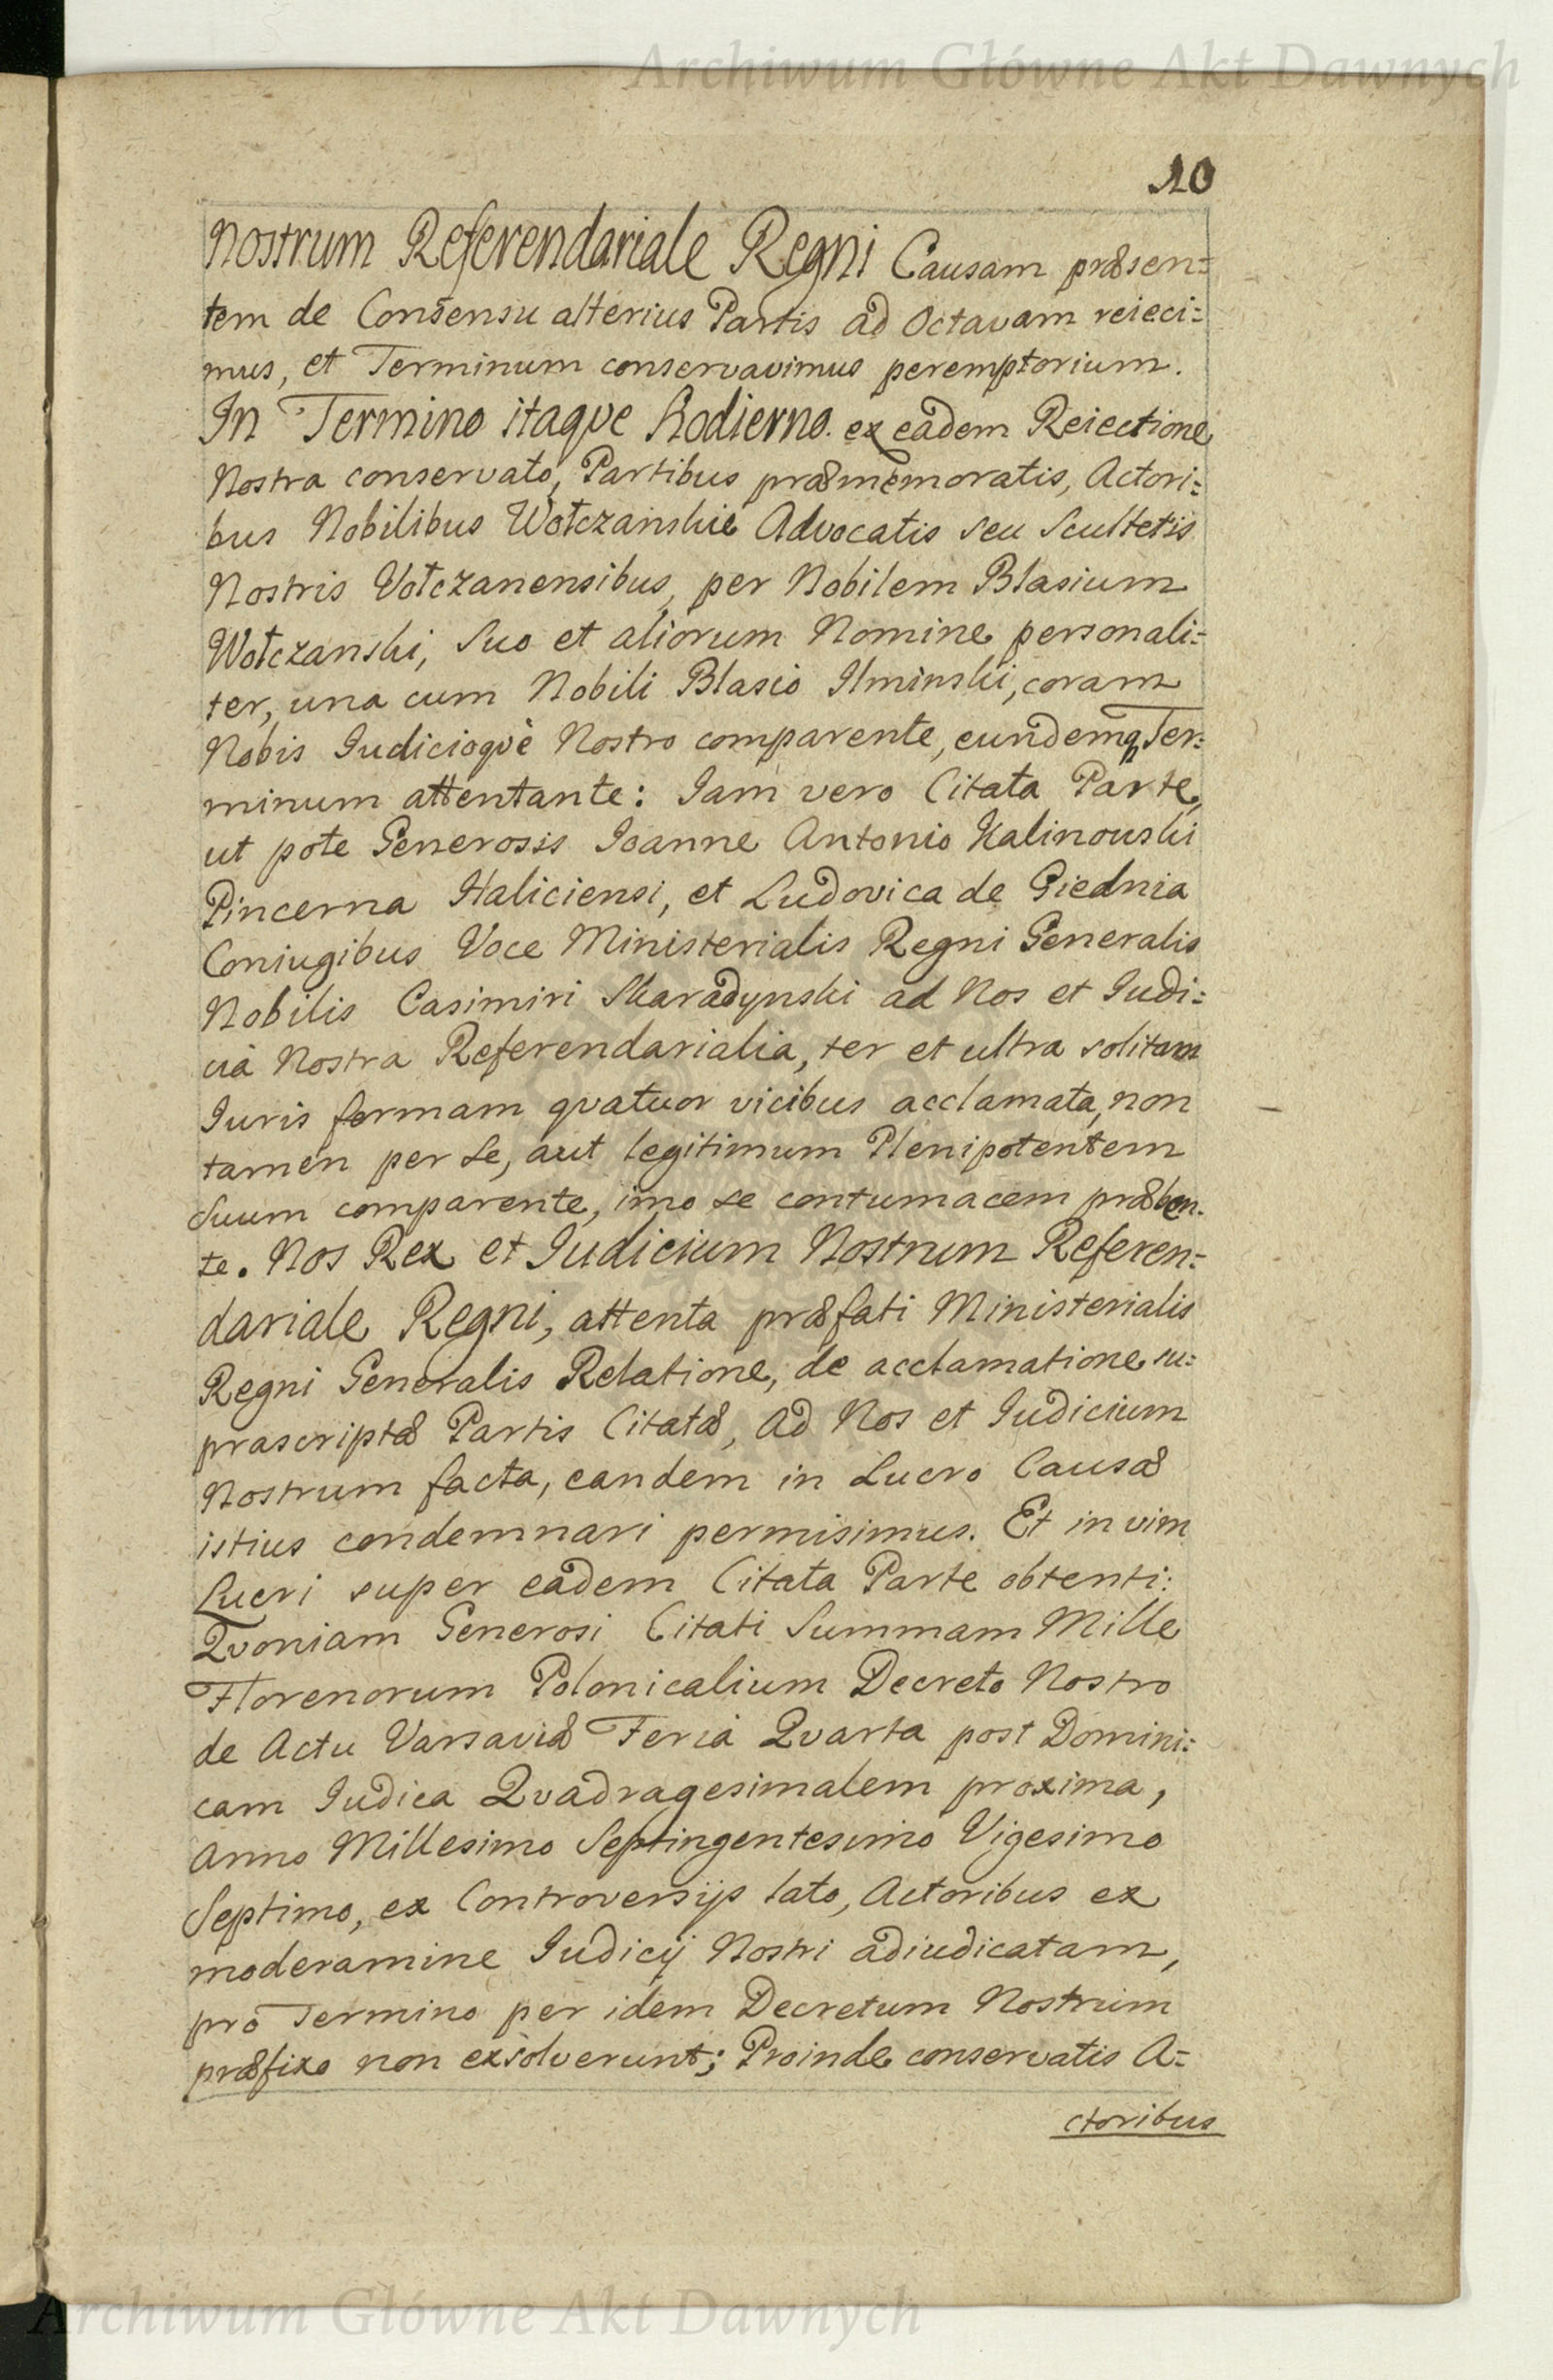 Archiwum Główne Akt Dawnych
10
Nostrum Referendariale Regni Causam præsen=
tem de Consensu alterius Partis ad Octavam reieci=
mus, et Terminum conservavimus peremptorium.
In Termino itaqve hodierno ex eadem Reiectione
Nostra conservato, Partibus præmemoratis, Actori=
bus Nobilibus Wołczanskie Advocatis seu Scultetis
Nostris Vołczanensibus, per Nobilem Blasium
Wołczanski, Suo et aliorum Nomine personali=
ter, una cum Nobili Blasio Ilminski, coram
Nobis Iudicioqvè Nostro comparente, eundemq Ter=
minum attentante: Iam vero Citata Parte,
ut pote Generosis Ioanne Antonio Kalinouski
Pincerna Haliciensi, et Ludovica de Giednia
Coniugibus Voce Ministerialis Regni Generalis
Nobilis Casimiri Skaradynski ad Nos et Iudi=
cià Nostra Referendarialia, ter et ultra solitam
Iuris formam qvatuor vicibus acclamata, non
tamen per se, aut legitimum Plenipotentem
Suum comparente, imo se contumacem præben=
te. Nos Rex et Iudicium Nostrum Referen=
dariale Regni, attenta præfati Ministerialis
Regni Generalis Relatione, de acclamatione su=
prascriptæ Partis Citatæ, ad Nos et Iudicium
Nostrum facta, eandem in Lucro Causæ
istius condemnari permisimus. Et in vim
Lucri super eadem Citata Parte obtenti:
Qvoniam Generosi Citati Summam Mille
Florenorum Polonicalium Decreto Nostro
de Actu Varsaviæ Feria Qvarta post Domini=
cam Iudica Qvadragesimalem proxima,
Anno Millesimo Septingentesimo Vigesimo
Septimo, ex Controversijs lato, Actoribus ex
moderamine Iudicij Nostri adiudicatam,
pro Termino per idem Decretum Nostrum
præfixo non exsolverunt; Proinde conservatis A=
ctoribus
Archiwum Główne Akt Dawnych